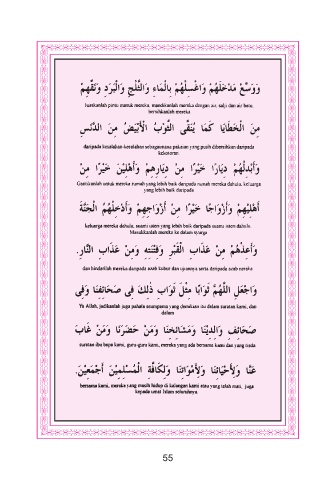 وَوَسِّعْ مَدْخَلَهُمْ وَاغْسِلْهُمْ بِالْمَاءِ وَالثَّلْجِ وَالْبَرَدِ وَنَقِّهِمْ
luaskanlah pintu masuk mereka, mandikanlah mereka dengan air, salji dan air batu,
bersihkanlah mereka
مِنَ الْخَطَايَا كَمَا يُنَقَّى الثَّوْبُ الْأَبْيَضُ مِنَ الدَّنَسِ
daripada kesalahan-kesalahan sebagaimana pakaian yang putih dibersihkan daripada
kekotoran
وَأَبْدِلْهُمْ دِيَارًا خَيْرًا مِنْ دِيَارِهِمْ وَأَهْلِيْنَ خَيْرًا مِنْ
Gantikanlah untuk mereka rumah yang lebih baik daripada rumah mereka dahulu, keluarga
yang lebih baik daripada
أَهْلِيْهِمْ وَأَزْوَاجًا خَيْرًا مِنْ أَزْوَاجِهِمْ وَأَدْخِلْهُمُ الْجَنَّةَ
keluarga mereka dahulu, suami isteri yang lebih baik daripada suami isteri dahulu.
Masukkanlah mereka ke dalam syurga
وَأَعِذْهُمْ مِنْ عَذَابِ الْقَبْرِ وَفِتْنَتِهِ وَمِنْ عَذَابِ النَّارِ.
dan hindarilah mereka daripada azab kubur dan ujiannya serta daripada azab neraka
وَاجْعَلِ اللَّهُمَّ ثَوَابًا مِثْلَ ثَوَابِ ذٰلِكَ فِى صَحَائِفِنَا وَفِى
Ya Allah, jadikanlah juga pahala seumpama yang demikian itu dalam suratan kami, dan
dalam
صَحَائِفِ وَالِدَيْنَا وَمَشَائِخِنَا وَمَنْ حَضَرَنَا وَمَنْ غَابَ
suratan ibu bapa kami, guru-guru kami, mereka yang ada bersama kami dan yang tiada
عَنَّا وَلِأَحْيَائِنَا وَلِأَمْوَاتِنَا وَلِكَافَّةِ الْمُسْلِمِيْنَ أَجْمَعِيْنَ.
bersama kami, mereka yang masih hidup di kalangan kami atau yang telah mati, juga
kepada umat Islam seluruhnya
55